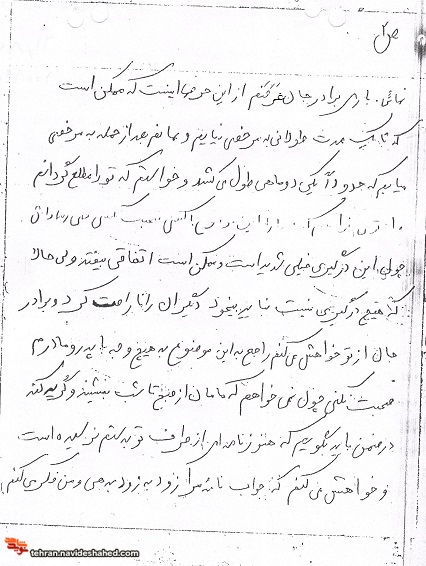 ص ۲
نمائی. باری برادر جان غرضم از این حرفها اینست که ممکن است
که تا یک مدت طولانی به مرخصی نیاییم و ما نفر بعد از حمله به مرخصی
میاییم که حدوداً یکی دو ماهی طول می کشد و خواستم که تو را مطلع گردانم
را از این با کسی صحبت کنی
چون این درگیری خیلی شدید است و ممکن است اتفاقی بیفتد ولی حالا
که هیچ درگیری نیست نباید بیخود دیگران را ناراحت کرد و برادر
جان از تو خواهش می کنم راجع به این موضوع به هیچ وجه با پدر و مادرم
صحبت نکنی چون نمی خواهم که مامان از صبح تا شب بنشیند و گریه کند
در ضمن باید بگویم که هنوز نامه ای از طرف تو بدستم نرسیده است
و خواهش می کنم که جواب نامه مرا زود به زود بدهی و من فکر می کنم
tehran.navideshahed.com